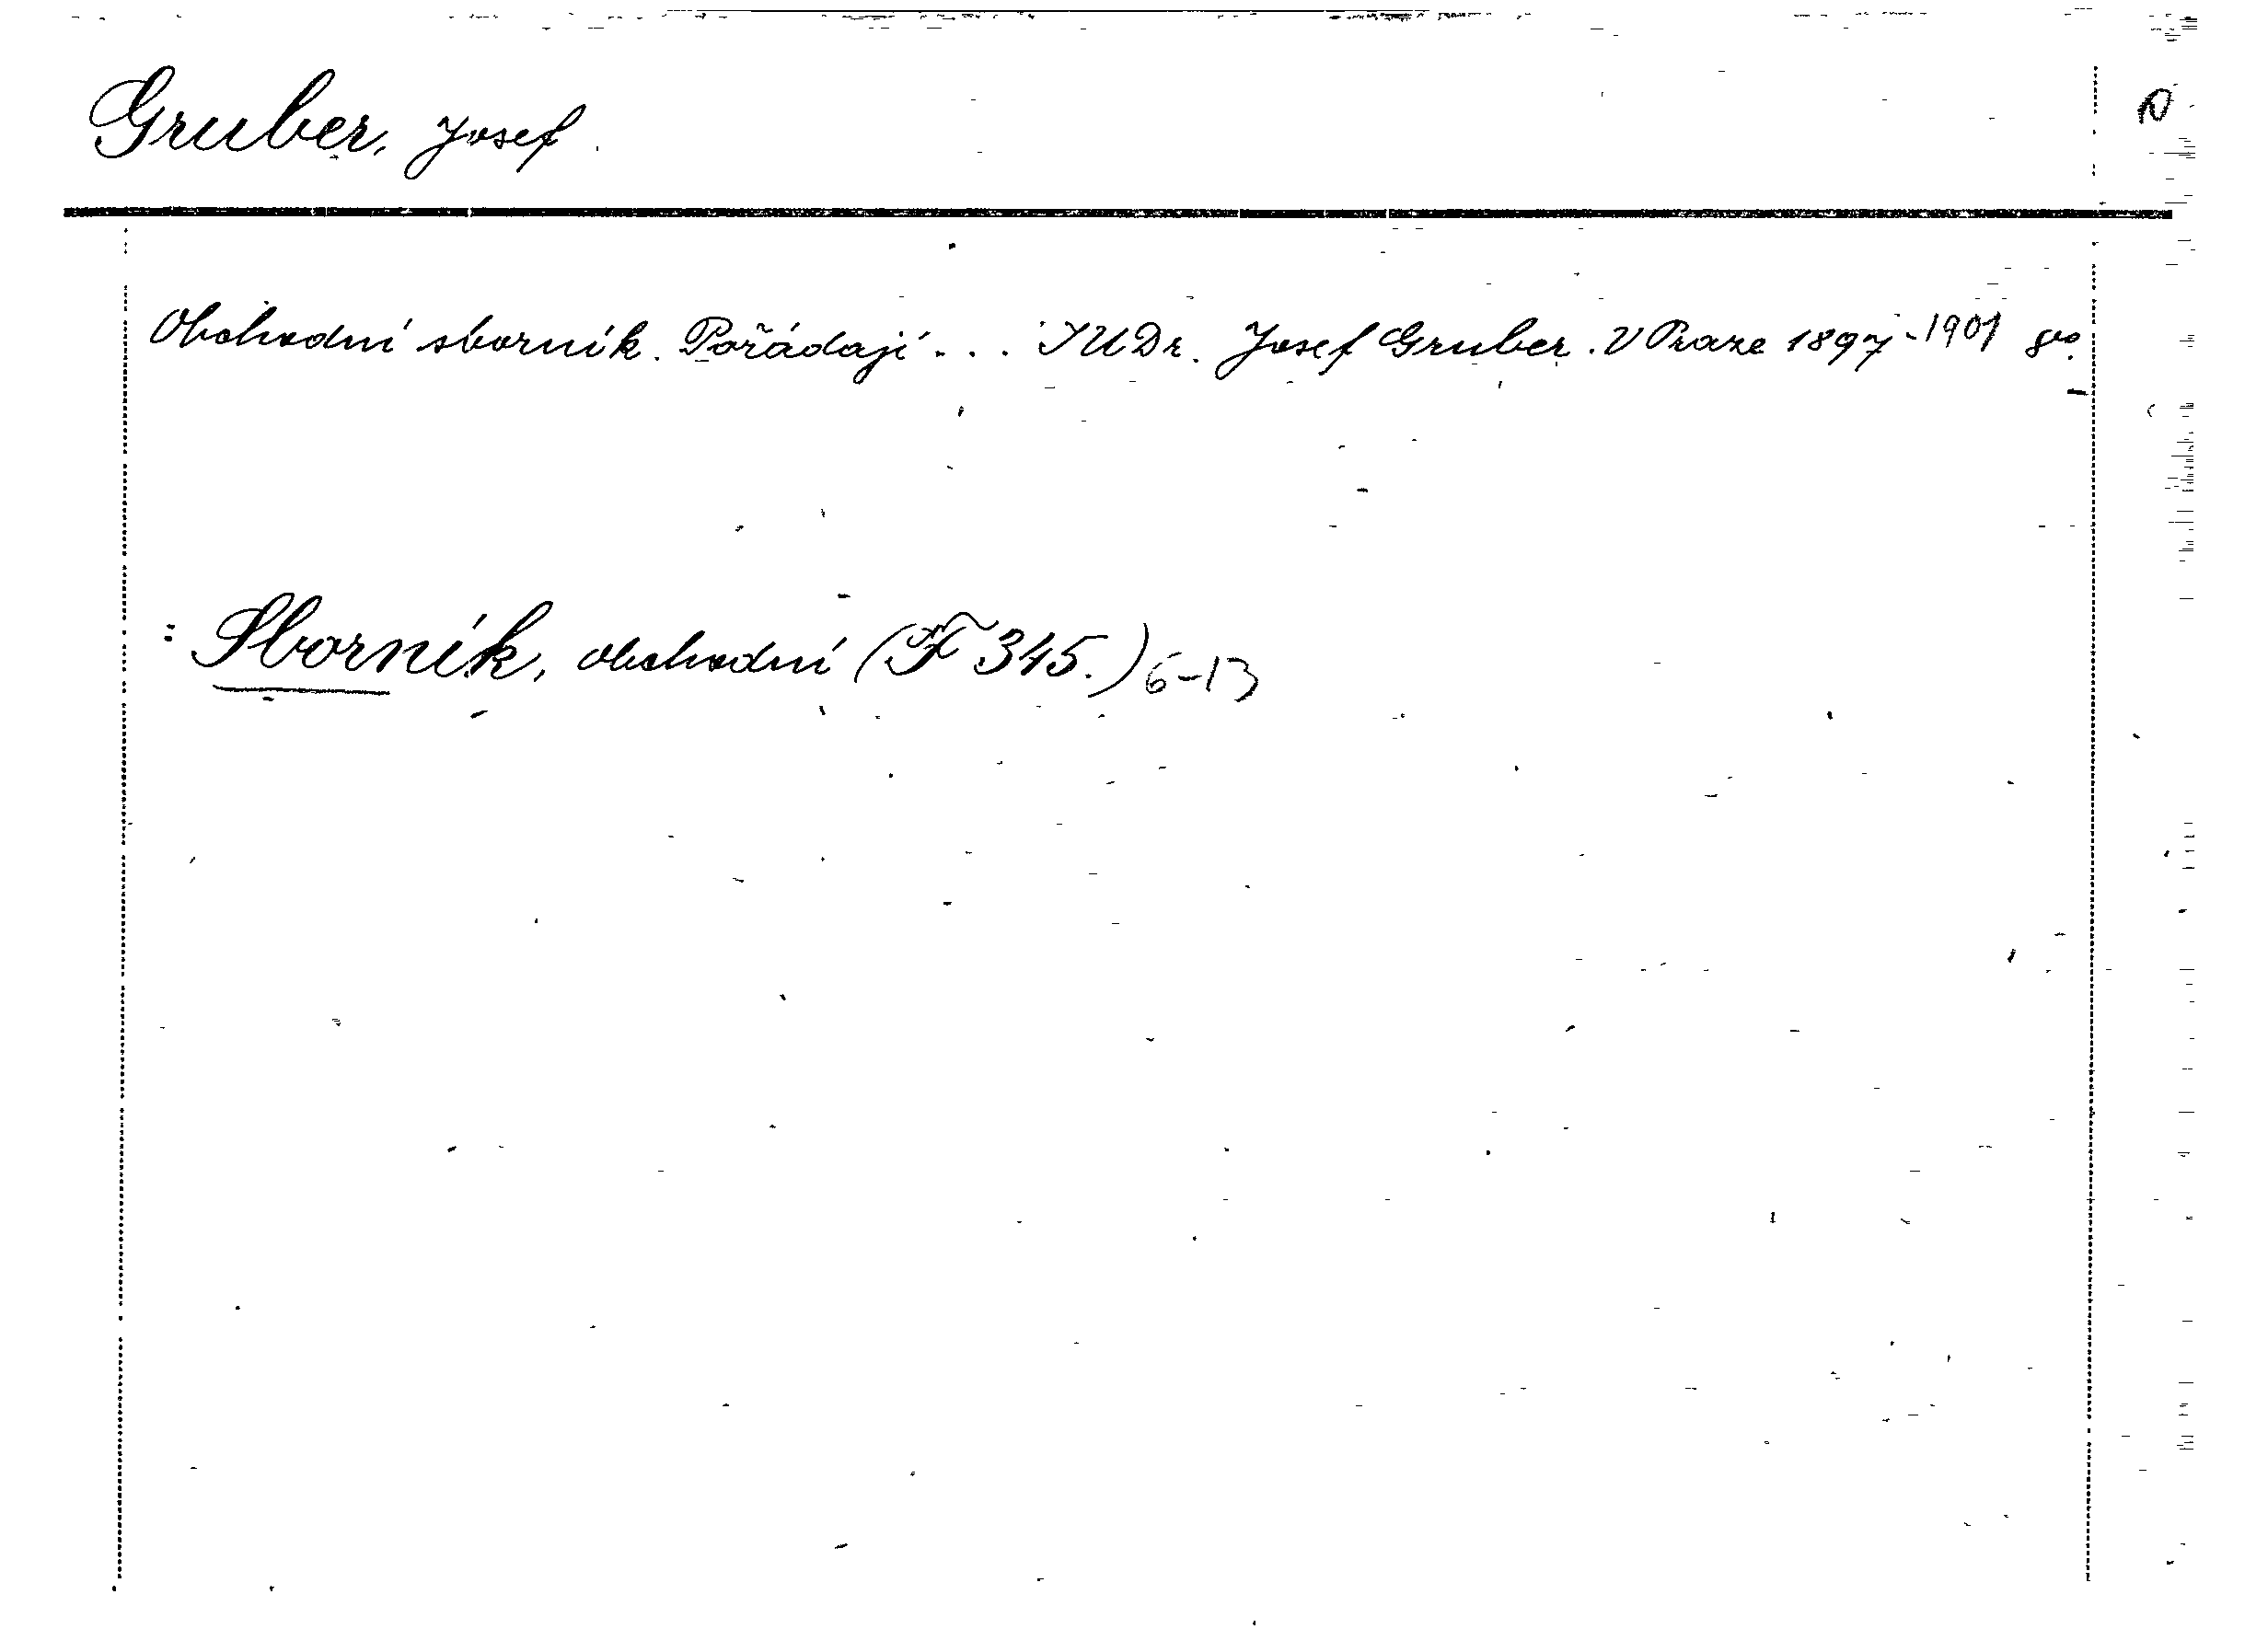 Gruber, Josef.
Obchodní sborník. Pořádají... JUDr. Josef Gruber. V Praze 1897-1901 8vo.
: Sborník, obchodní (F 345.) 6-13